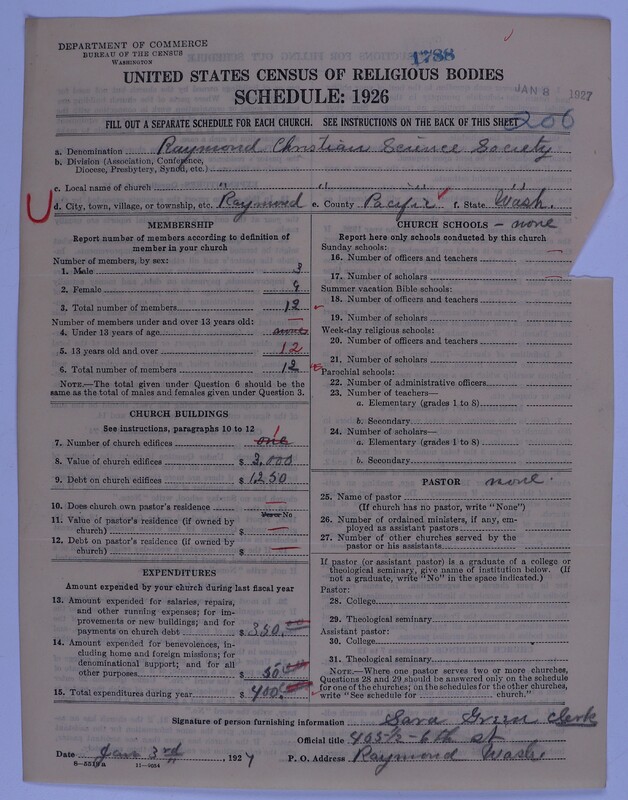 DEPARTMENT OF COMMERCE
BUREAU OF THE CENSUS
WASHINGTON
1788
UNITED STATES CENSUS OF RELIGIOUS BODIES
SCHEDULE: 1926
JAN 8 1927
FILL OUT A SEPARATE SCHEDULE FOR EACH CHURCH. SEE INSTRUCTIONS ON THE BACK OF THIS SHEET
206
a. Denomination Raymond Christian Science Society
b. Division (Association, Conference,
Diocese, Presbytery, Synod, etc.)
c. Local name of church " " " "
d. City, town, village, or township, etc. Raymond e. County Pacific f. State Wash.
MEMBERSHIP
Report number of members according to definition of
member in your church
Number of members, by sex:
1. Male 3
2. Female 9
3. Total number of members 12
Number of members under and over 13 years old:
4. Under 13 years of age none
5. 13 years old and over 12
6. Total number of members 12
NOTE.—The total given under Question 6 should be the
same as the total of males and females given under Question 3.
CHURCH BUILDINGS
See instructions, paragraphs 10 to 12
7. Number of church edifices one 1
8. Value of church edifices $ 2,000
9. Debt on church edifices $ 1250
10. Does church own pastor's residence
Yes or No
11. Value of pastor's residence (if owned by
church) $
12. Debt on pastor's residence (if owned by
church) $
EXPENDITURES
Amount expended by your church during last fiscal year
13. Amount expended for salaries, repairs,
and other running expenses; for im-
provements or new buildings; and for
payments on church debt $ 350.00
14. Amount expended for benevolences, in-
cluding home and foreign missions; for
denominational support; and for all
other purposes $ 50.00
15. Total expenditures during year $ 400.00
CHURCH SCHOOLS – none
Report here only schools conducted by this church
Sunday schools:
16. Number of officers and teachers
17. Number of scholars
Summer vacation Bible schools:
18. Number of officers and teachers
19. Number of scholars
Week-day religious schools:
20. Number of officers and teachers
21. Number of scholars
Parochial schools:
22. Number of administrative officers
23. Number of teachers—
a. Elementary (grades 1 to 8)
b. Secondary
24. Number of scholars—
a. Elementary (grades 1 to 8)
b. Secondary
PASTOR none.
25. Name of pastor
(If church has no pastor, write "None")
26. Number of ordained ministers, if any, em-
ployed as assistant pastors
27. Number of other churches served by the
pastor or his assistants
If pastor (or assistant pastor) is a graduate of a college or
theological seminary, give name of institution below. (If
not a graduate, write "No" in the space indicated.)
Pastor:
28. College
29. Theological seminary
Assistant pastor:
30. College
31. Theological seminary
NOTE.—Where one pastor serves two or more churches,
Questions 28 and 29 should be answered only on the schedule
for one of the churches; on the schedules for the other churches,
write "See schedule for church."
Signature of person furnishing information Sara Green Clerk
Official title 405½-6th st
Date Jan 3rd, 1927 P. O. Address Raymond Wash.
8-5219a 11-9034